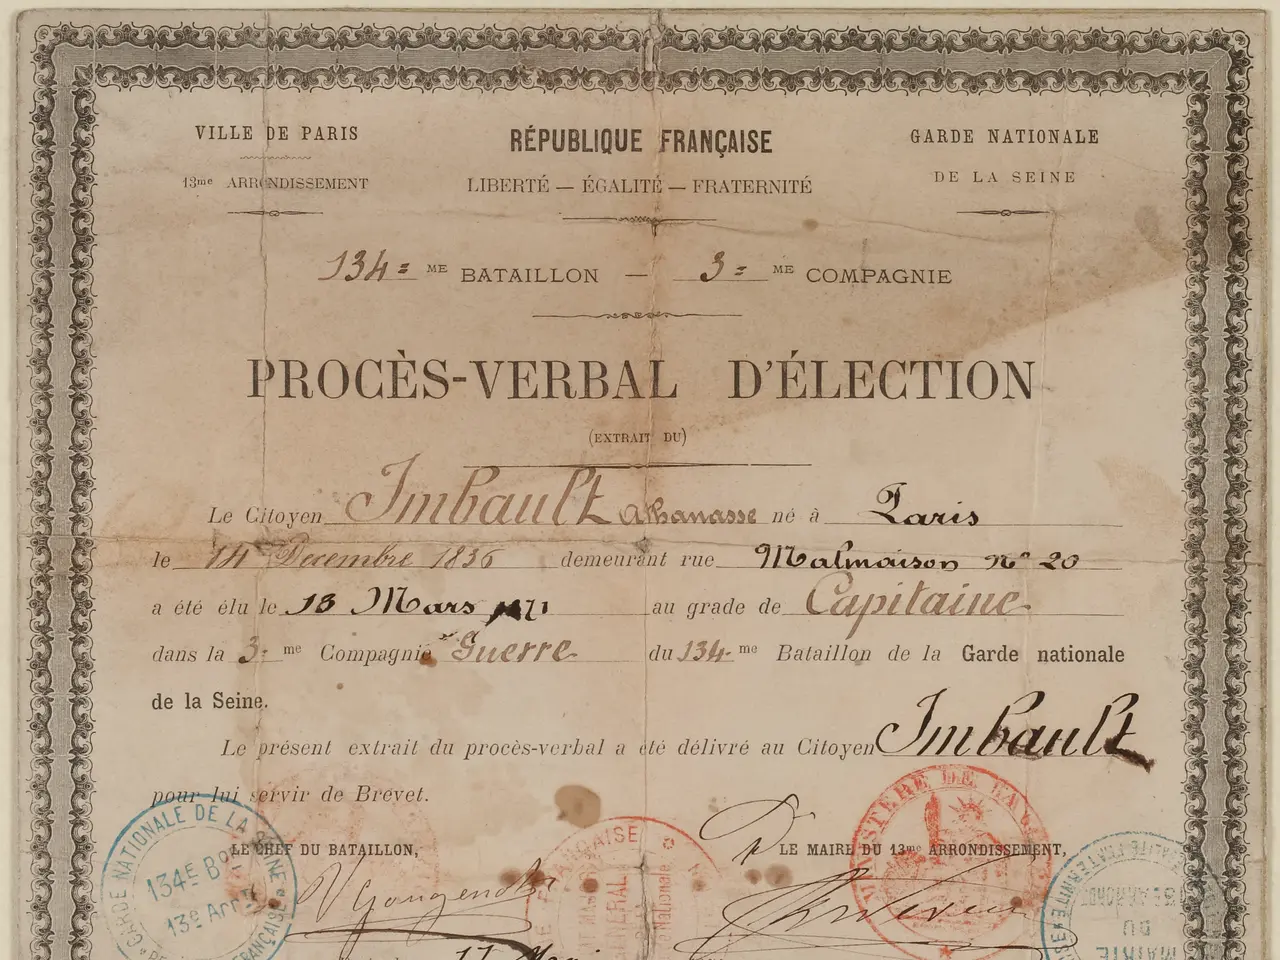 VILLE DE PARIS
13me ARRONDISSEMENT
RÉPUBLIQUE FRANÇAISE
LIBERTÉ — ÉGALITÉ — FRATERNITÉ
GARDE NATIONALE
DE LA SEINE
134= ME BATAILLON — 3= ME COMPAGNIE
PROCÈS-VERBAL D'ÉLECTION
(EXTRAIT DU)
Le Citoyen Imbault Athanasse né à Paris
le 14 Decembre 1836 demeurant rue Malmaison No 20
a été élu le 13 Mars 1871 au grade de Capitaine
dans la 3= me Compagnie Guerre du 134= me Bataillon de la Garde nationale
de la Seine.
Le présent extrait du procès-verbal a été délivré au Citoyen Imbault
pour lui servir de Brevet.
LE CHEF DU BATAILLON,
LE MAIRE DU 13me ARRONDISSEMENT,
GARDE NATIONALE DE LA SEINE
134E Bon
13e Arrt
FRANÇAISE
MINISTÈRE DE LA
MAIRIE
DU
13E ARRONDT